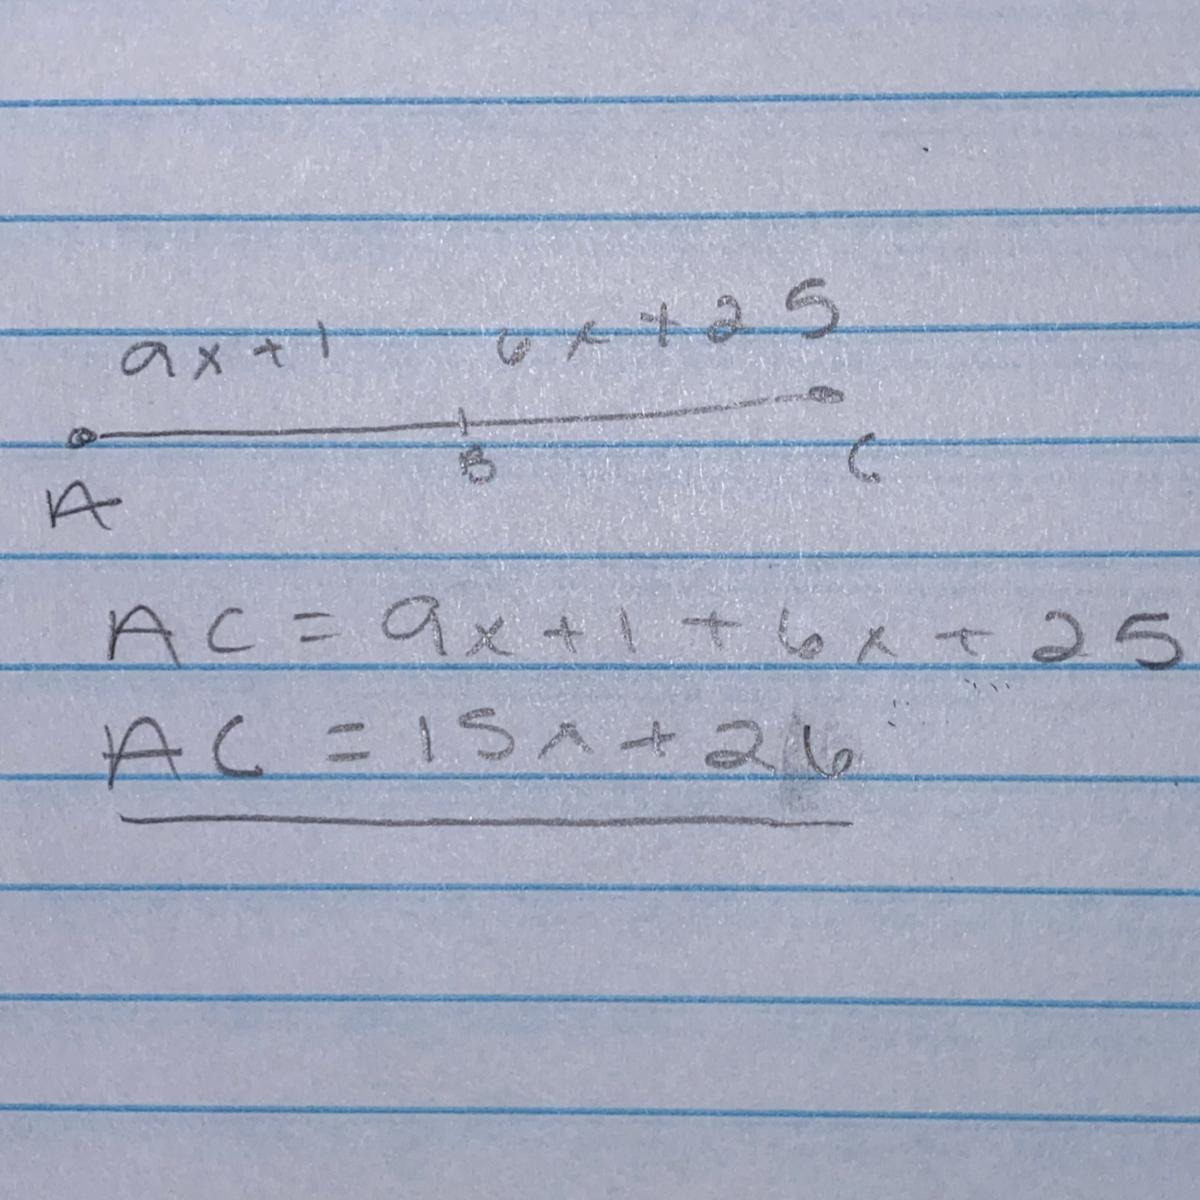 9x+1 6x+25
A B C
AC = 9x+1+6x+25
AC = 15x+26